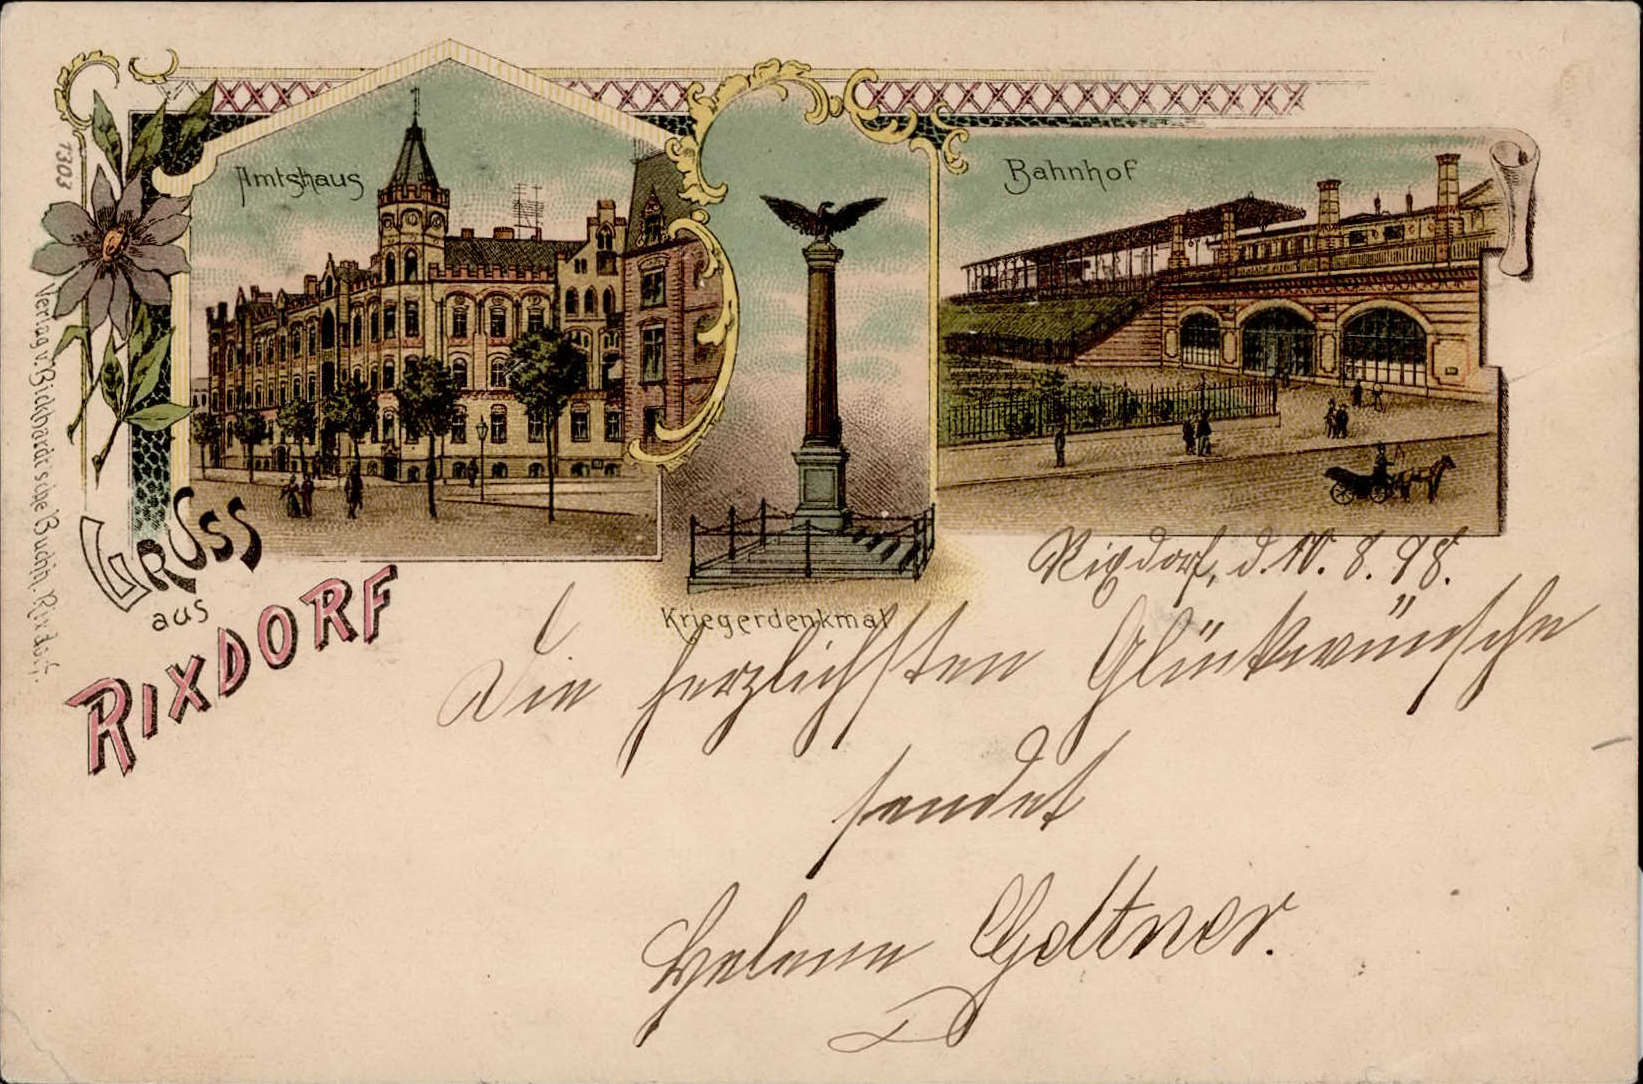 Amtshaus
Bahnhof
Kriegerdenkmal
Gruss
aus
Rixdorf
1303
Verlag v. Bickhardt'sche Buchh. Rixdorf.
Rixdorf, d. 10. 8. 98.
Die herzlichsten Glückwünsche
sendet
Helene